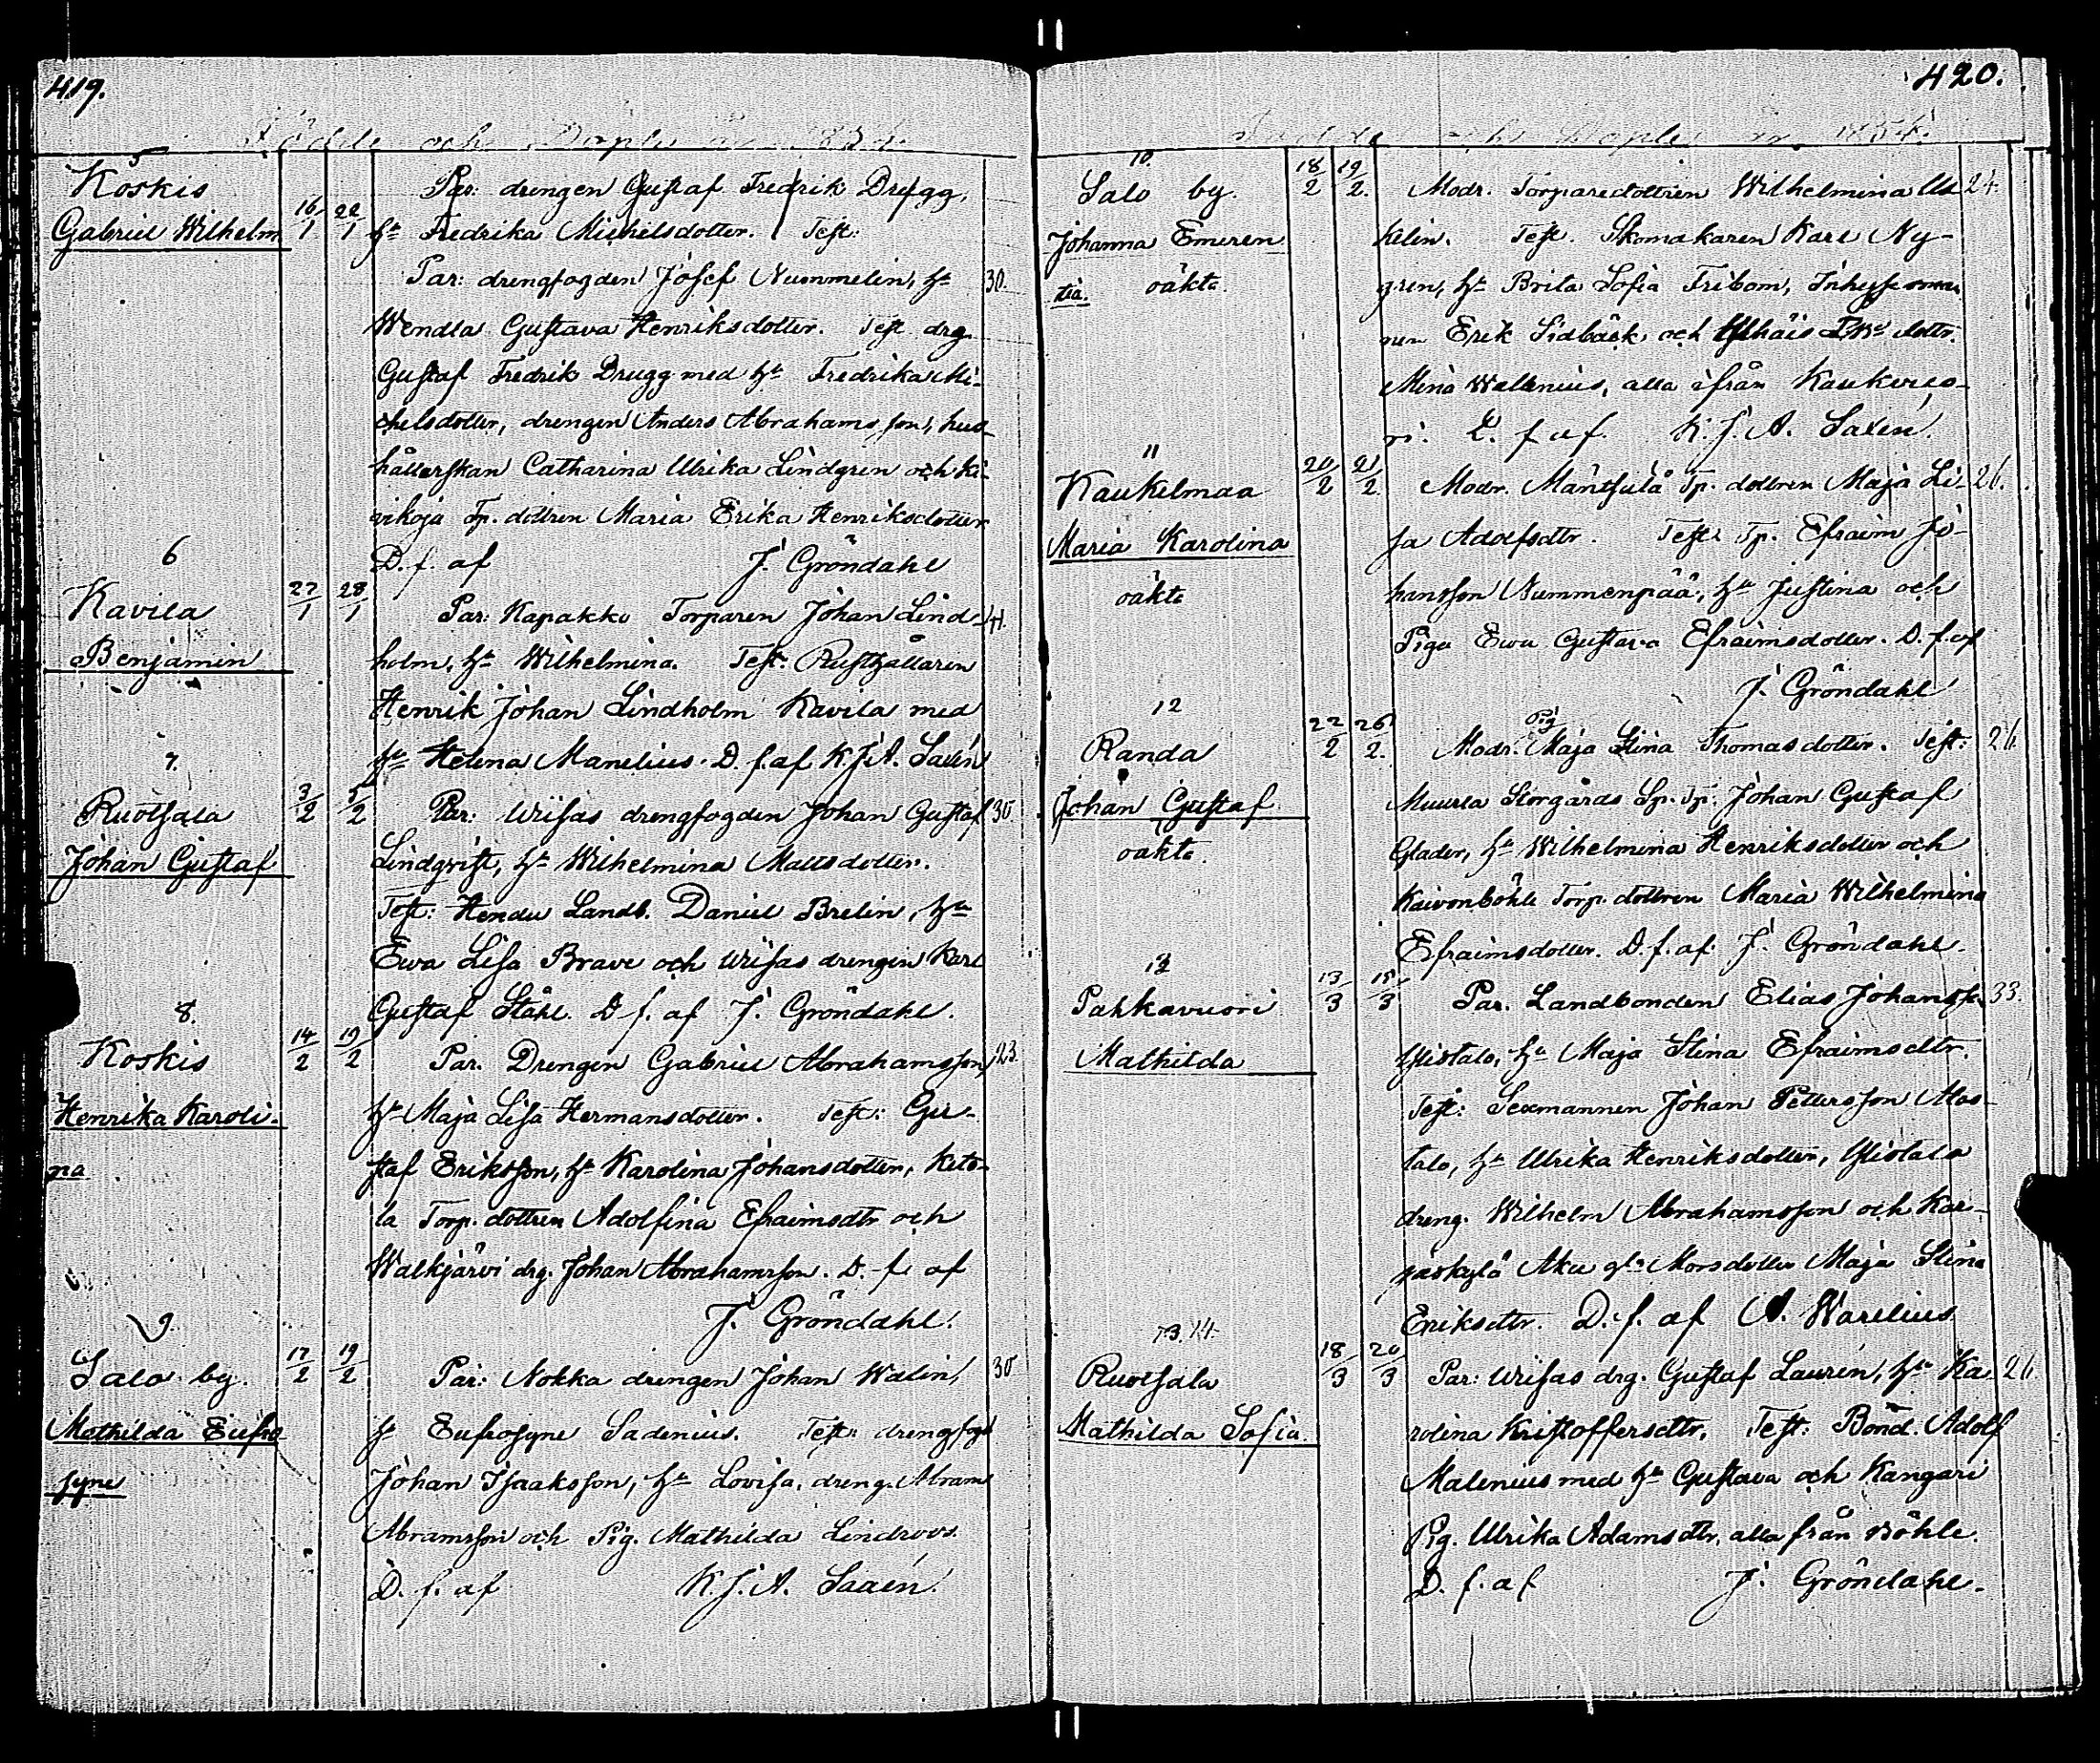 419.
Födde och Döpte år 1854.
5
Koskis
Gabriel Wilhelm
16/1 22/1
Par: drengen Gustaf Fredrik Drugg,
hu Fredrika Michelsdotter. Test:
Par: drengfogden Josef Nummelin, hu 30.
Wendla Gustava Henriksdotter. Test. drg.
Gustaf Fredrik Drugg med hu Fredrika Mi-
chelsdotter, drengen Anders Abrahamsson, hus-
hållerskan Catharina Ulrika Lindgren och Ki-
vikoja Tp. dottren Maria Erika Henriksdotter
D. f. af J. Gröndahl
6
Kavila
Benjamin
27/1 28/1
Par: Kapakko Torparen Johan Lind- 41.
holm, hu Wilhelmina. Test: Rusthållaren
Henrik Johan Lindholm Kavila med
hu Helena Manelius. D. f. af K. J. A. Saxén
7.
Ruotsala
Johan Gustaf
3/2 5/2
Par: Uriſas drengfogden Johan Gustaf 30
Lindqvist, hu Wilhelmina Mattsdotter.
Test: Hendu Landb. Daniel Brelin, hu
Ewa Lisa Brave och Uriſas drengen Karl
Gustaf Ståhl. D. f. af J. Gröndahl.
8.
Koskis
Henrika Karoli-
na
14/2 19/2
Par. Drengen Gabriel Abrahamsson, 23.
hu Maja Lisa Hermansdotter. Test: Gu-
staf Eriksson, hu Karolina Johansdotter, Keto-
la Torp. dottren Adolfina Efraimsdtr och
Walkjärvi drg. Johan Abrahamsson. D. f. af
J. Gröndahl.
9.
Salo by.
Mathilda Eufro
syne
17/2 19/2
Par: Nokka drengen Johan Walin, 30
h Eufrosyne Sadenius. Test: drengfogd
Johan Isaaksson, hu Lovisa, dreng. Abram
Abramsson och Pig. Mathilda Lindroos.
D. f. af K. J. A. Saxén.
420.
Födde och Döpte år 1854.
10.
Salo by.
Johanna Emeren
tia. oäkta.
18/2 19/2.
Modr. Torparedottren Wilhelmina Us 24.
kelin. Test. Skomakaren Karl Ny-
gren, hu Brita Sofia Fribom, Inhyses
nen Erik Sidbäck och dottr.
Mina Wallenius, alla ifrån Kaukvuo-
ri. D. f. af. K. J. A. Saxén.
11
Kaukelmaa
Maria Karolina
oäkta
20/2 21/2.
Modr. Mäntsälä Tp. dottren Maja Li- 26.
sa Adolfsdtr. Test: Tp. Efraim Jo-
hansson Nummenpää, hu Justina och
Piga Ewa Gustava Efraimsdotter. D. f. af
J. Gröndahl
12
Randa
Johan Gustaf
oäkta.
22/2 26/2.
Pig
Modr. Maja Stina Thomasdotter. Test: 26.
Muurla Storgårds Sp. Tp. Johan Gustaf
Glader, hu Wilhelmina Henriksdotter och
Kaivonböhle Torp. dottren Maria Wilhelmina
Efraimsdotter. D. f. af J. Gröndahl.
13
Pahkavuori
Mathilda
13/3 15/3
Par. Landbonden Elias Johansson 33.
Yliskalo, hu Maja Stina Efraimsdtr.
Test: Sexmannen Johan Pettersson
talo, hu Ulrika Henriksdotter, Ylistalo
dreng. Wilhelm Abrahamsson och Kar-
jaskylä Morsdotter Maja Stina
Eriksdtr. D. f. af A. Warelius
13. 14.
Ruotsala
Mathilda Sofia.
18/3 20/3
Par: Uriſas drg. Gustaf Laurén, hu Ka- 26.
rolina Kristoffersdtr, Test: Bond. Adolf
Malenius med hu Gustava och Kangari
Pig. Ulrika Adamsdtr, alla från Böhle.
D. f. af J. Gröndahl.